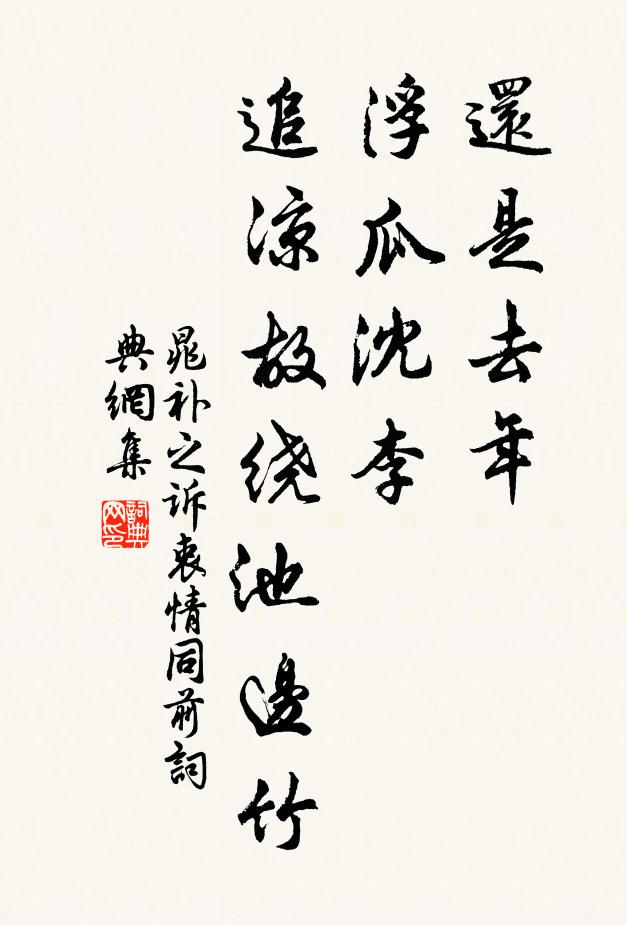 還是去年
浮瓜沈李
追凉故绕池邊竹
晁补之诉衷情同前詞
典網集
詞典
网印